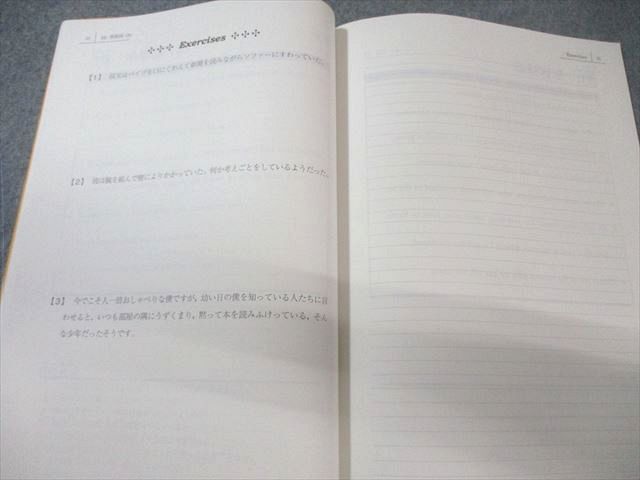 ✣✣✣ Exercises ✣✣✣
【1】 はパイプを口にくわえて新聞を読みながらソファーにすわっていた。
【2】 彼は腕を組んで壁によりかかっていた。何か考えごとをしているようだった。
【3】 今でこそ人一倍おしゃべりな僕ですが，幼い日の僕を知っている人たちに言
わせると，いつも部屋の隅にうずくまり，黙って本を読みふけっている，そん
な少年だったそうです。
Exercises